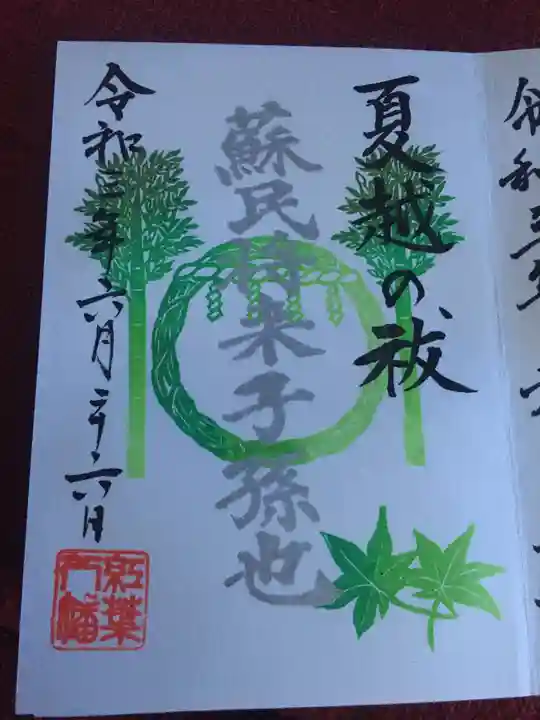 令和三年
夏越の祓
蘇民将来子孫也
令和三年六月二十六日
紅葉
八幡